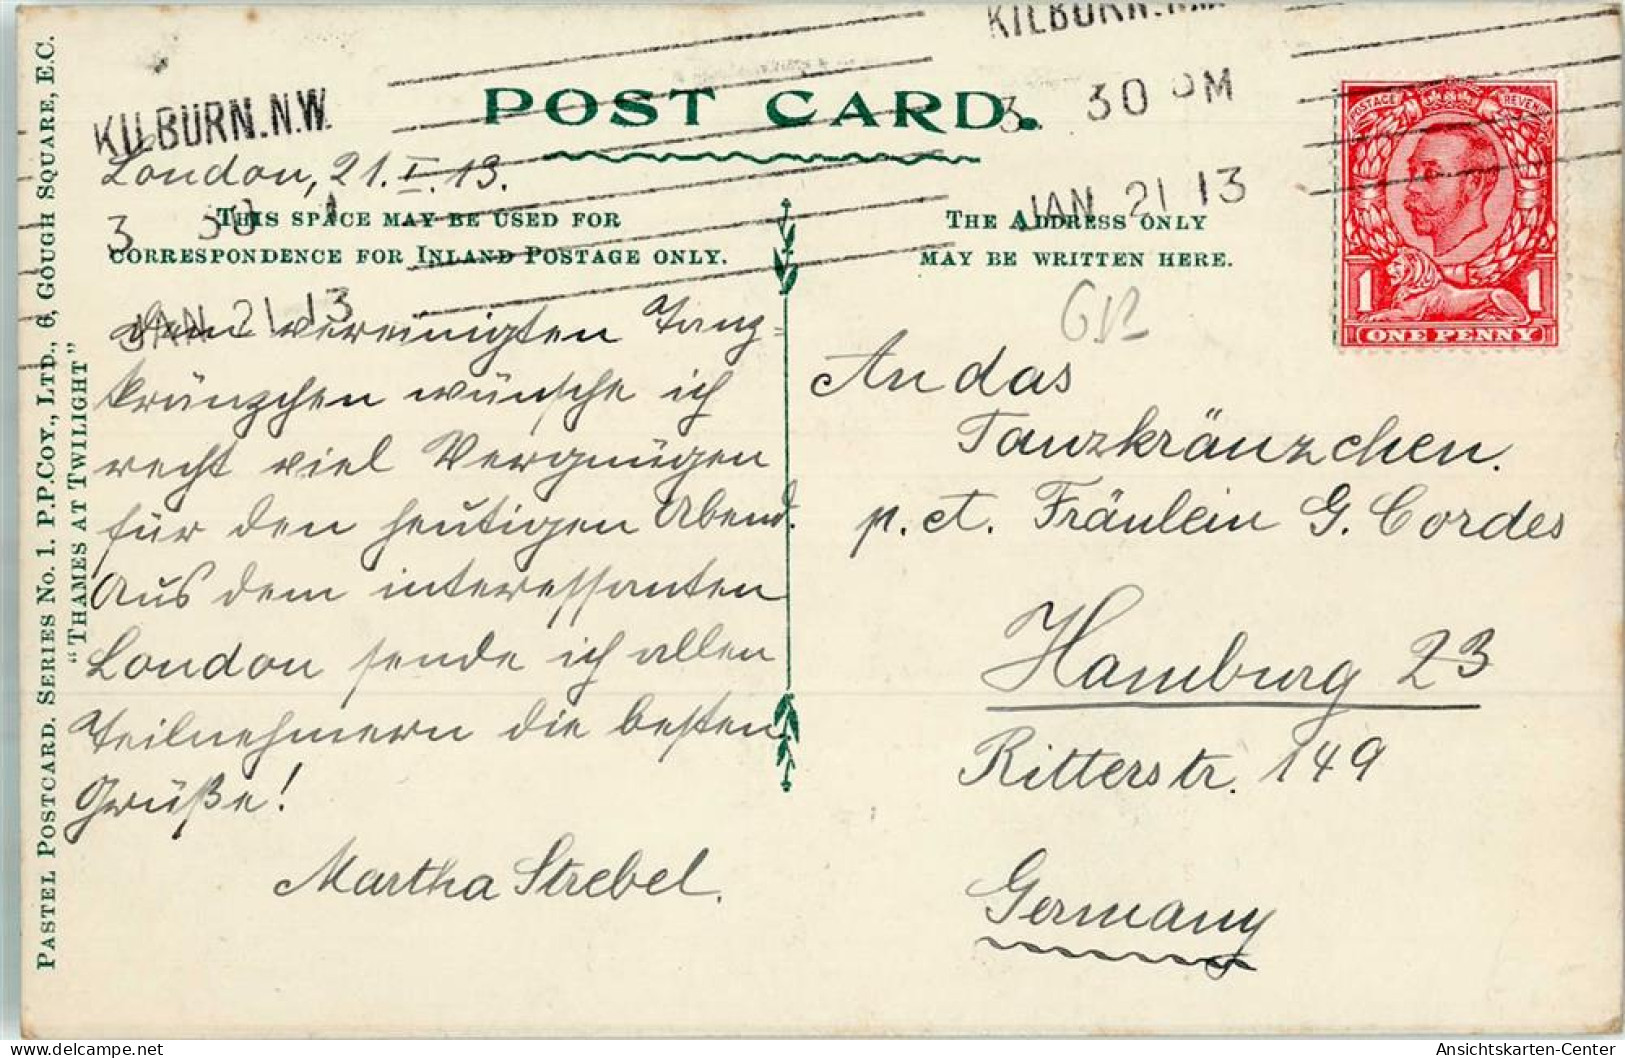 KILBURN.N.W.
3 30 PM
JAN 21 13
KILBURN.N.W.
3 30
JAN 21 13
POST CARD.
London, 21.I.13.
THIS SPACE MAY BE USED FOR
CORRESPONDENCE FOR INLAND POSTAGE ONLY.
Dem vereinigten Tanz-
kränzchen wünsche ich
recht viel Vergnügen
für den heutigen Abend.
Aus dem interessanten
London sende ich allen
Teilnehmern die besten
Grüße!
Martha Strebel.
THE ADDRESS ONLY
MAY BE WRITTEN HERE.
An das
Tanzkränzchen.
p. ct. Fräulein G. Cordes
Hamburg 23
Ritterstr. 149
Germany
POSTAGE REVENUE
1 1
ONE PENNY
PASTEL POSTCARD. SERIES No. 1. P.P.COY., LTD., 6, GOUGH SQUARE, E.C.
"THAMES AT TWILIGHT"
Ansichtskarten-Center